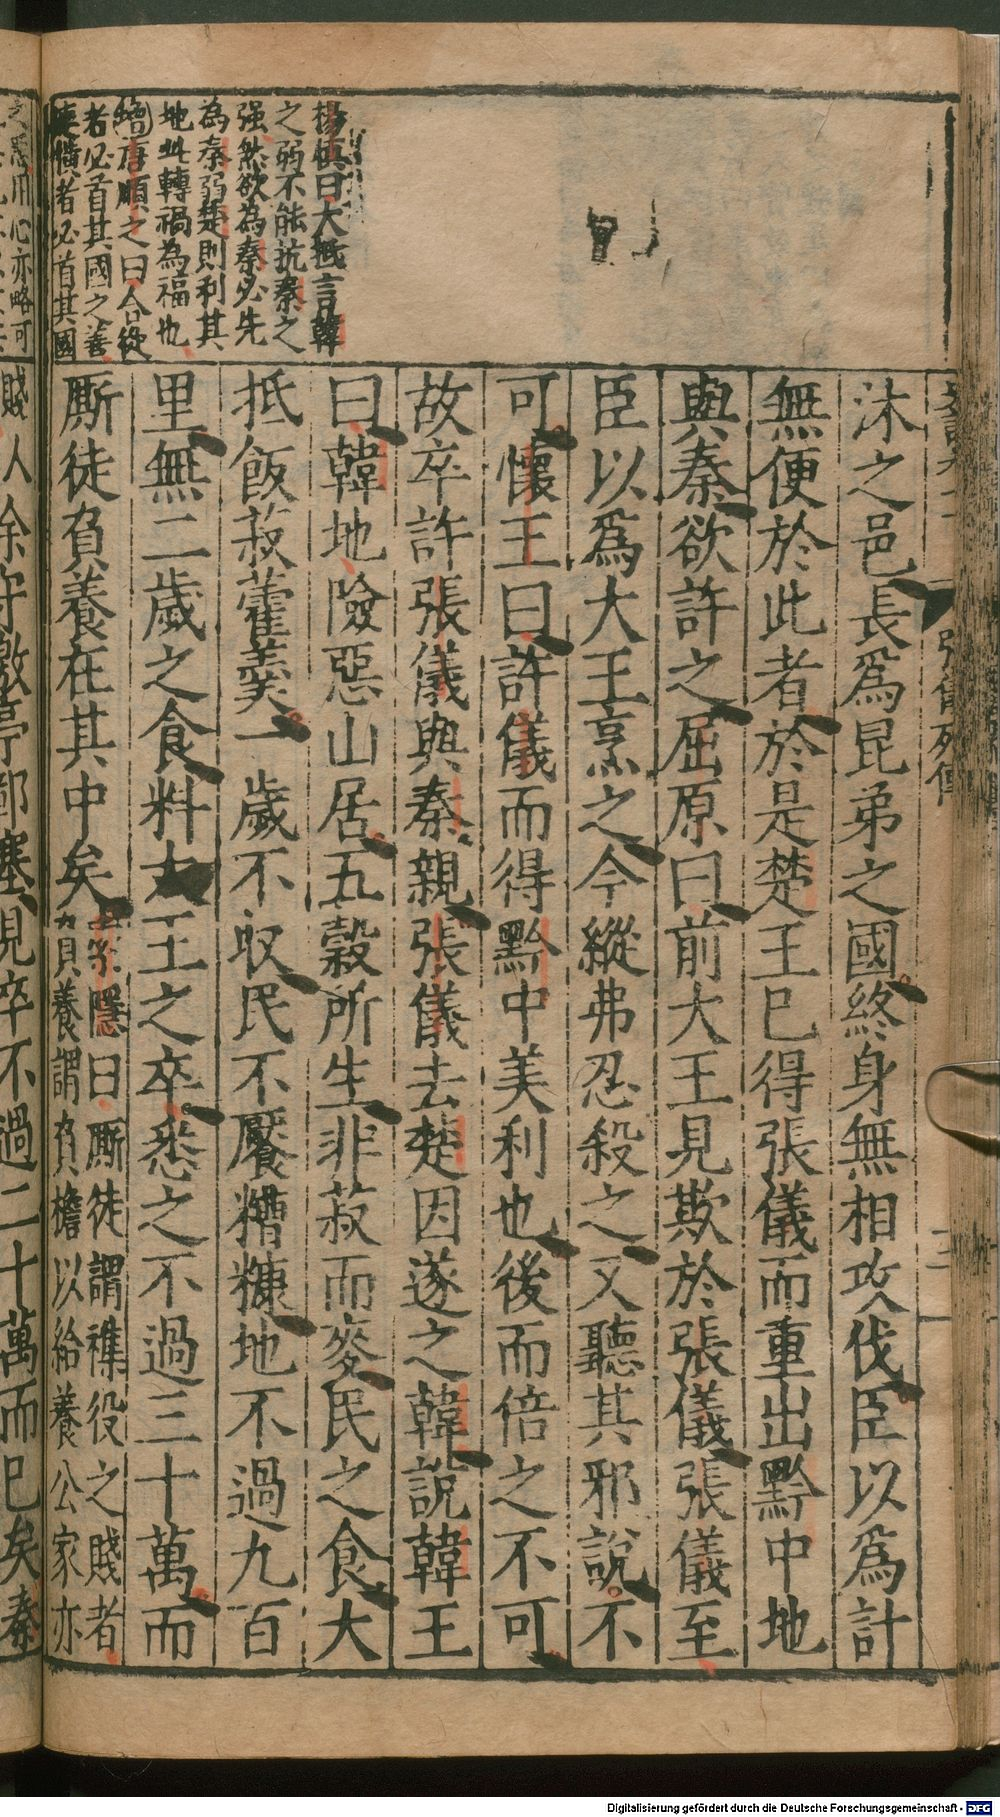 沐之邑長爲昆弟之國終身無相攻伐臣以爲計
無便於此者於是楚王已得張儀而重出黔中地
與秦欲許之屈原曰前大王見欺於張儀張儀至
臣以爲大王烹之今縱弗忍殺之又聽其邪說不
可懷王曰許儀而得黔中美利也後而倍之不可
故卒許張儀與秦親張儀去楚因遂之韓說韓王
曰韓地險惡山居五穀所生非菽而麥民之食大
抵飯菽藿羹一歲不收民不饜糟糠地不過九百
里無二歲之食料大王之卒悉之不過三十萬而
厮徒負養在其中矣
索隱曰厮徒謂襍役之賤者
負養謂負檐以給養公家亦
楊慎曰大抵言韓
之弱不能抗秦之
强然欲為秦必先
為秦弱楚則利其
地此轉禍為福也
增唐順之曰合從
者必首其國之善
連橫者必首其國
賤人
張儀列傳
見卒不過二十萬而已矣秦
Digitalisierung gefördert durch die Deutsche Forschungsgemeinschaft - DFG